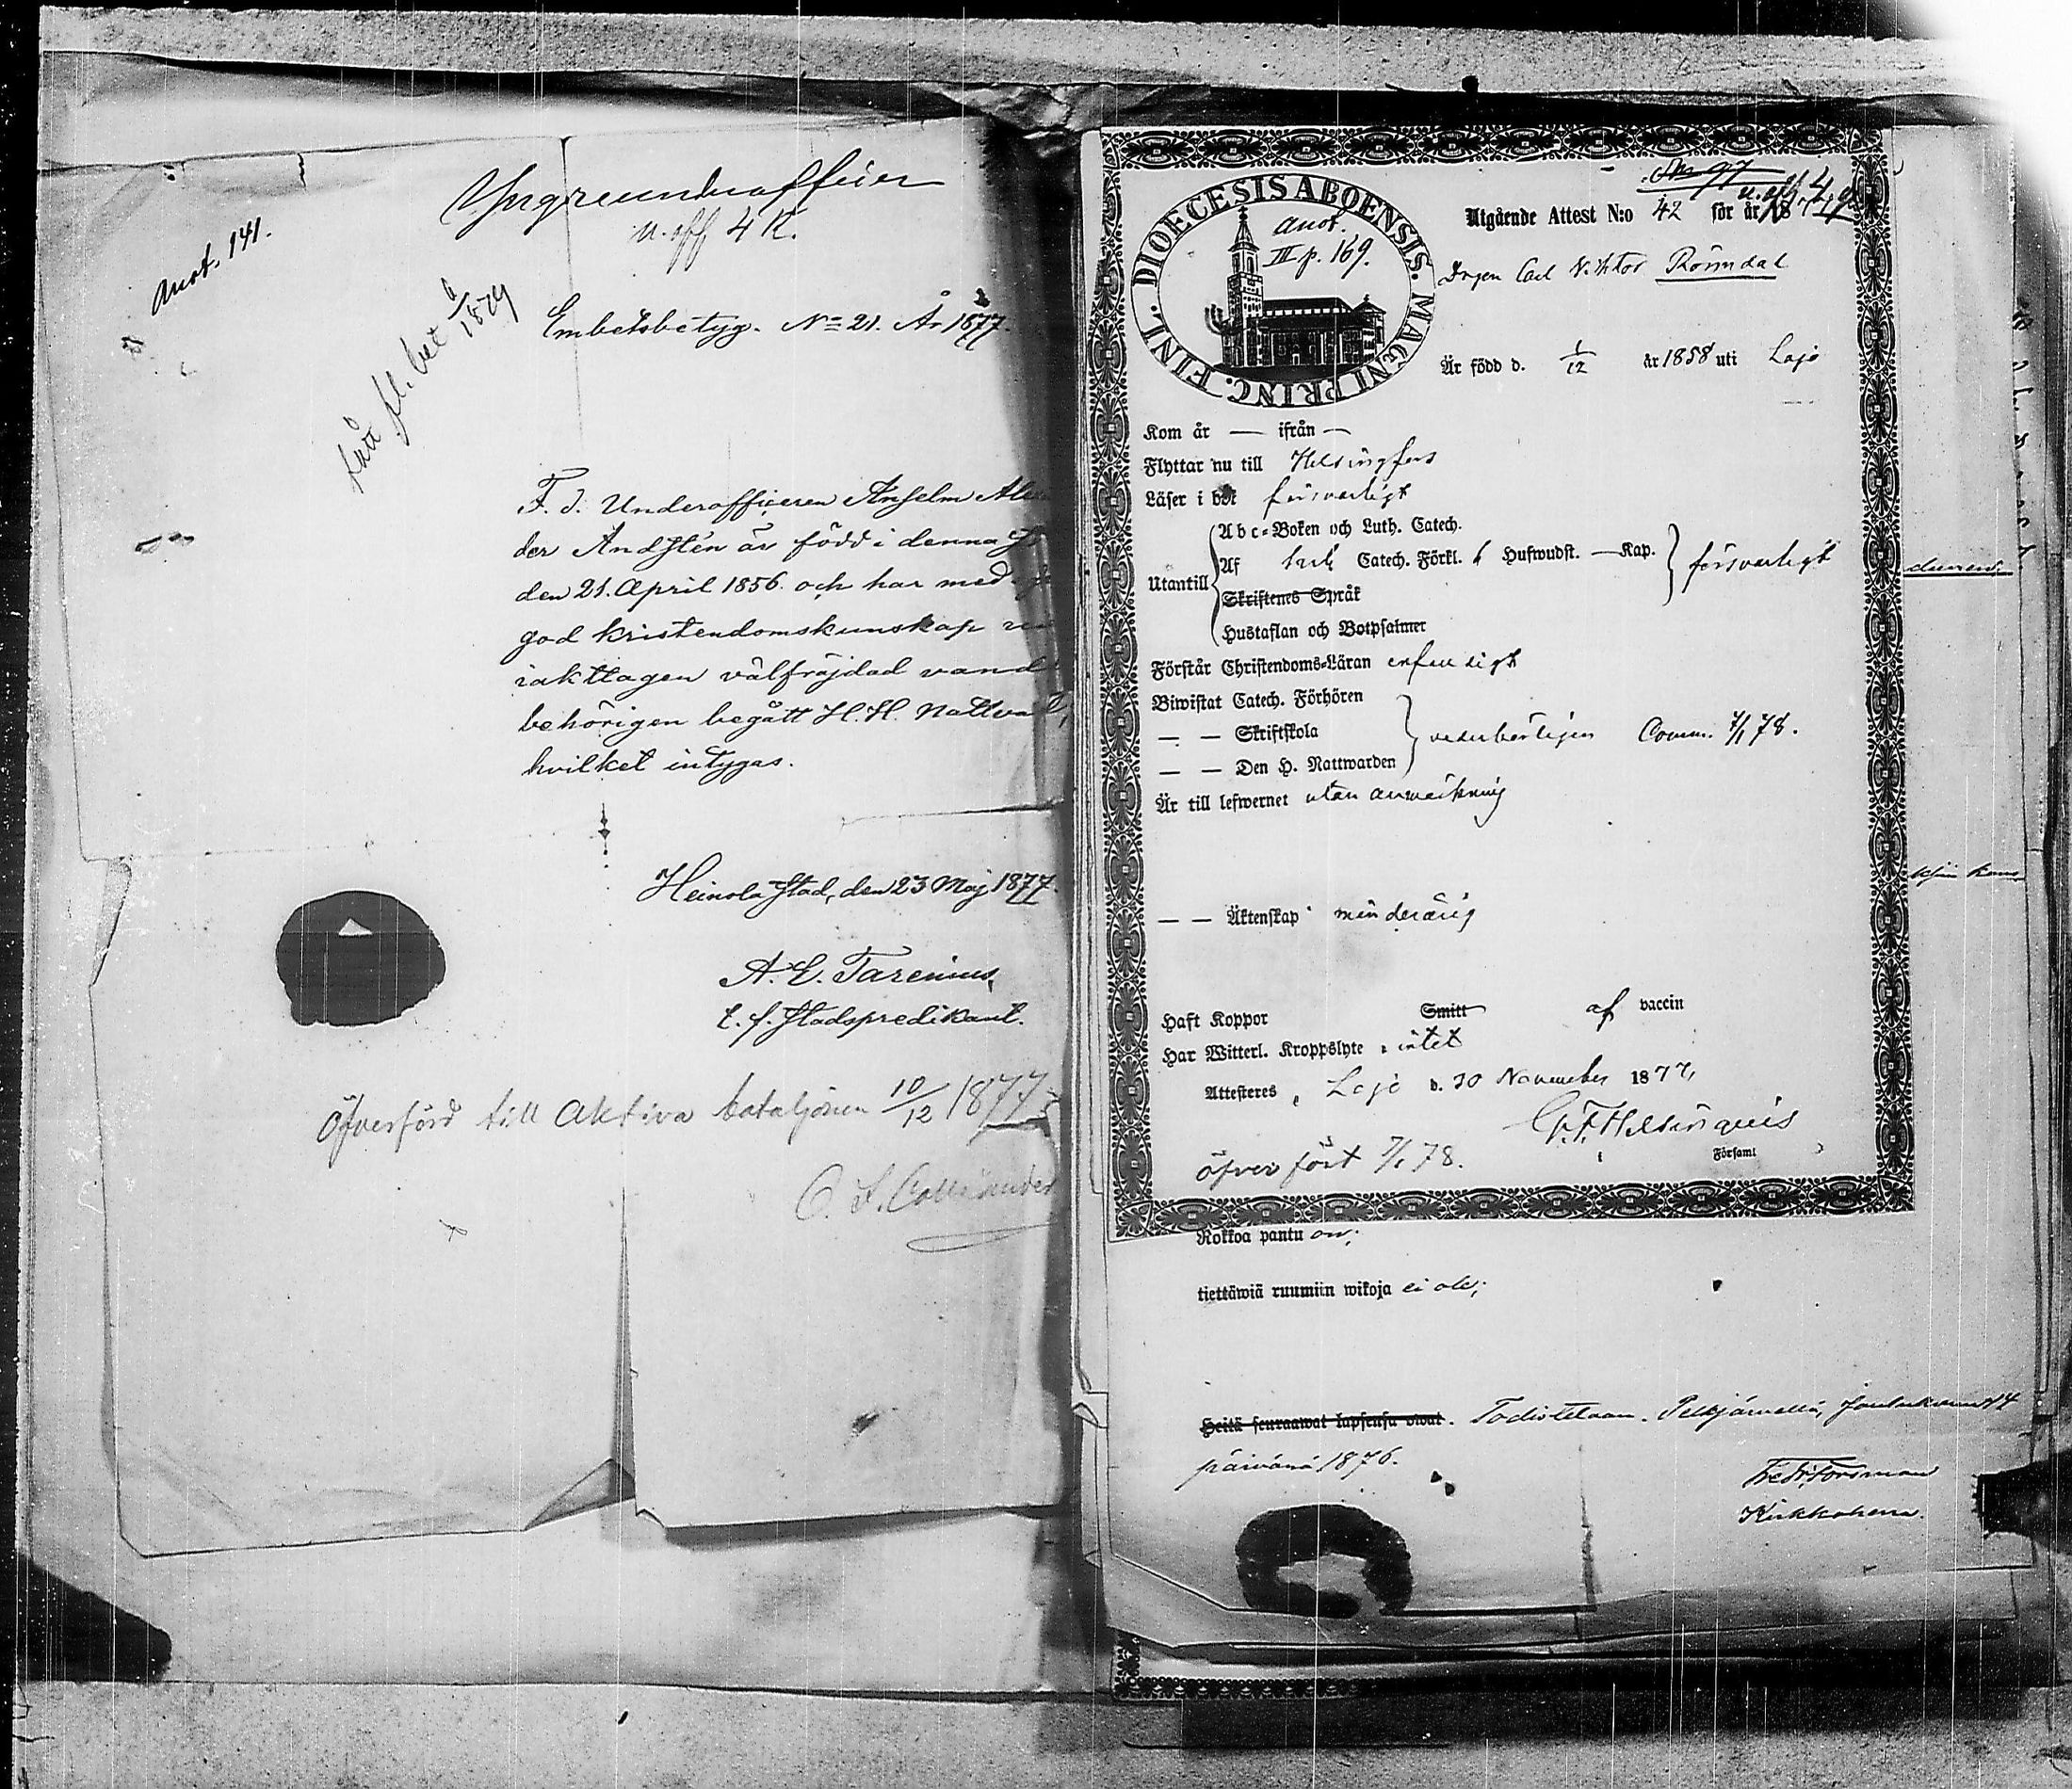 Anot. 141.
Yngre underofficier
u. off 4 K.
fått fl. bet 6/1879
Embetsbetyg. No 21. År 1877.
F. d. Underofficieren Anselm
der Andstén är född i denna
den 21. April 1856. och har med
god kristendomskunskap
iakttagen välfräjdad vand
behörigen begått H. H. Nattvard,
hvilket intygas.
Heinola stad, den 23 Maj 1877.
A. E. Tarenius,
t. f. Stadspredikant.
Öfverförd till Aktiva bataljonen 10/12 1877
DIOECESIS ABOENSIS. MAGNI PRINC. FINL.
anot.
III p. 169.
No 97
u. off 4
Utgående Attest N:o 42 för år 18
Drgen Carl Viktor Rönndal
Är född d. 1/12 år 1858 uti Lojo
Kom år — ifrån —
Flyttar nu till Helsingfors
Läser i bok försvarligt
Utantill
Abc-Boken och Luth. Catech.
Af Catech. Förkl. 6 Hufwudst. — Kap.
Skriftenes Språk
Hustaflan och Botpsalmer
försvarligt
Förstår Christendoms-Läran
Biwistat Catech. Förhören
— — Skriftskola
— — Den H. Nattwarden
vederbörligen Comm. 7/1 78.
Är till lefwernet utan anmärkning
— — Äktenskap minderårig
Haft Koppor Smitt af vaccin
Har Witterl. Kroppslyte intet
Attesteres, Lojo d. 30 November 1877,
G. F. Helsingius
Församl
öfverfört 7/1 78.
Rokkoa pantu on;
tiettäwiä ruumiin wikoja ei ole;
Heitä seuraawat lapsensa owat. Todistetaan. Pelkjärwellä, Joulukuun 14
päivänä 1876.
Fredr. Forsman
Kirkkoherra.